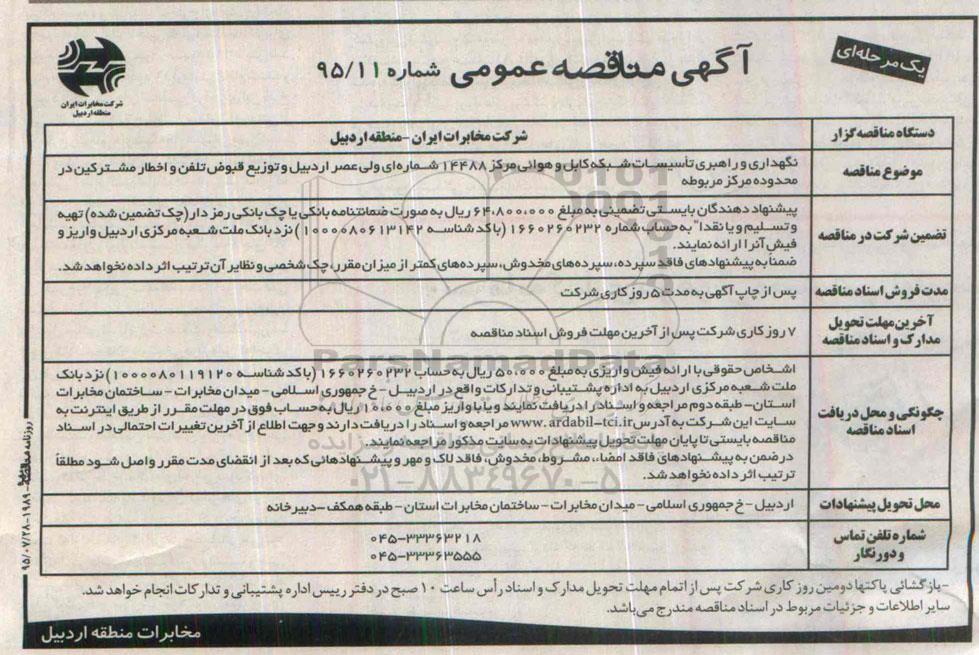 یک مرحله‌ای
آگهی مناقصه عمومی شماره ۹۵/۱۱
شرکت مخابرات ایران
منطقه اردبیل
دستگاه مناقصه گزار
شرکت مخابرات ایران - منطقه اردبیل
موضوع مناقصه
نگهداری و راهبری تأسیسات شبکه کابل و هوائی مرکز ۱۴۴۸۸ شماره‌ای ولی عصر اردبیل و توزیع قبوض تلفن و اخطار مشترکین در
محدوده مرکز مربوطه
تضمین شرکت در مناقصه
پیشنهاد دهندگان بایستی تضمینی به مبلغ ۶۴،۸۰۰،۰۰۰ ریال به صورت ضمانتنامه بانکی یا چک بانکی رمز دار (چک تضمین شده) تهیه
و تسلیم و یا نقدا" به حساب شماره ۱۶۶۰۲۶۰۲۳۲ (با کد شناسه ۱۰۰۰۰۸۰۶۱۳۱۴۲) نزد بانک ملت شعبه مرکزی اردبیل واریز و
فیش آنرا ارائه نمایند.
ضمناً به پیشنهادهای فاقد سپرده، سپرده‌های مخدوش، سپرده‌های کمتر از میزان مقرر، چک شخصی و نظایر آن ترتیب اثر داده نخواهد شد.
مدت فروش اسناد مناقصه
پس از چاپ آگهی به مدت ۵ روز کاری شرکت
آخرین مهلت تحویل
مدارک و اسناد مناقصه
۷ روز کاری شرکت پس از آخرین مهلت فروش اسناد مناقصه
چگونگی و محل دریافت
اسناد مناقصه
اشخاص حقوقی با ارائه فیش واریزی به مبلغ ۵۰،۰۰۰ ریال به حساب ۱۶۶۰۲۶۰۲۳۲ (با کد شناسه ۱۰۰۰۰۸۰۱۱۹۱۲۰) نزد بانک
ملت شعبه مرکزی اردبیل به اداره پشتیبانی و تدارکات واقع در اردبیل - خ جمهوری اسلامی - میدان مخابرات - ساختمان مخابرات
استان - طبقه دوم مراجعه و اسناد را دریافت نمایند و یا با واریز مبلغ ۱۰،۰۰۰ ریال به حساب فوق در مهلت مقرر از طریق اینترنت به
سایت این شرکت به آدرس www.ardabil-tci.ir مراجعه و اسناد را دریافت دارند و جهت اطلاع از آخرین تغییرات احتمالی در اسناد
مناقصه بایستی تا پایان مهلت تحویل پیشنهادات به سایت مذکور مراجعه نمایند.
در ضمن به پیشنهادهای فاقد امضاء، مشروط، مخدوش، فاقد لاک و مهر و پیشنهادهائی که بعد از انقضای مدت مقرر واصل شود مطلقاً
ترتیب اثر داده نخواهد شد.
محل تحویل پیشنهادات
اردبیل - خ جمهوری اسلامی - میدان مخابرات - ساختمان مخابرات استان - طبقه همکف - دبیرخانه
شماره تلفن تماس
و دورنگار
۰۴۵-۳۳۳۶۳۲۱۸
۰۴۵-۳۳۳۶۳۵۵۵
- بازگشائی پاکتها دومین روز کاری شرکت پس از اتمام مهلت تحویل مدارک و اسناد رأس ساعت ۱۰ صبح در دفتر رییس اداره پشتیبانی و تدارکات انجام خواهد شد.
سایر اطلاعات و جزئیات مربوط در اسناد مناقصه مندرج می‌باشد.
مخابرات منطقه اردبیل
روزنامه مناقصه - ۱۹۸۹ - ۹۵/۰۷/۲۸
ParsNamadData
۰۲۱-۸۸۳۴۹۶۷۰-۵